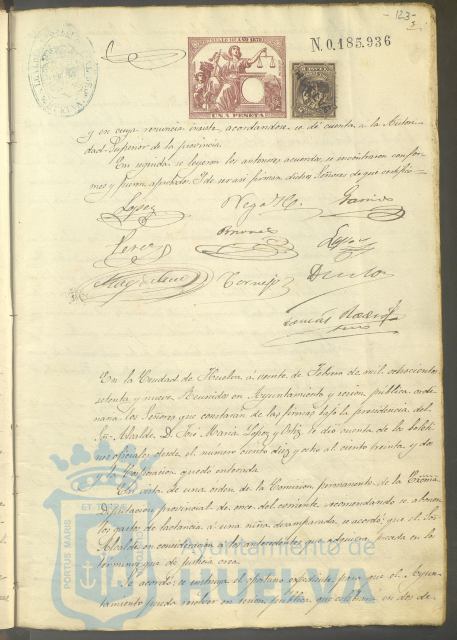 -123-
N.0.185.936
SELLO 10º AÑO 1879
UNA PESETA
y en cuya renuncia insiste, acordándose se dé cuenta a la Autori-
dad Superior de la provincia.
En seguida se leyeron los anteriores acuerdos, se encontraron confor-
mes y fueron aprobados. Y de ser así firman dichos Señores de que certifico=
Lopez
Garcia
Perez
Lopez
Cornejo
En la Ciudad de Huelva á veinte de Febrero de mil ochocientos
setenta y nueve. Reunidos en Ayuntamiento y sesion pública ordi-
naria los Señores que constarán de las firmas bajo la presidencia del
Sr. Alcalde D. José Maria Lopez y Ortiz se dió cuenta de los bolet-
ines oficiales desde el número ciento diez y ocho al ciento treinta y dos
y la Corporacion quedó enterada.
En vista de una orden de la Comision permanente de la Excma.
Diputacion provincial de once del corriente, recomendando se abonen
los gastos de lactancia á una niña desamparada, se acordó que el Sor.
Alcalde en consideracion á los antecedentes que adquiera proceda en los
términos que de justicia crea.
Se acordó se instruya el oportuno expediente para que el Ayun-
tamiento pueda resolver en sesion pública que celebrará en dos de
PORTUS MARIS
ET
Ayuntamiento de
HUELVA